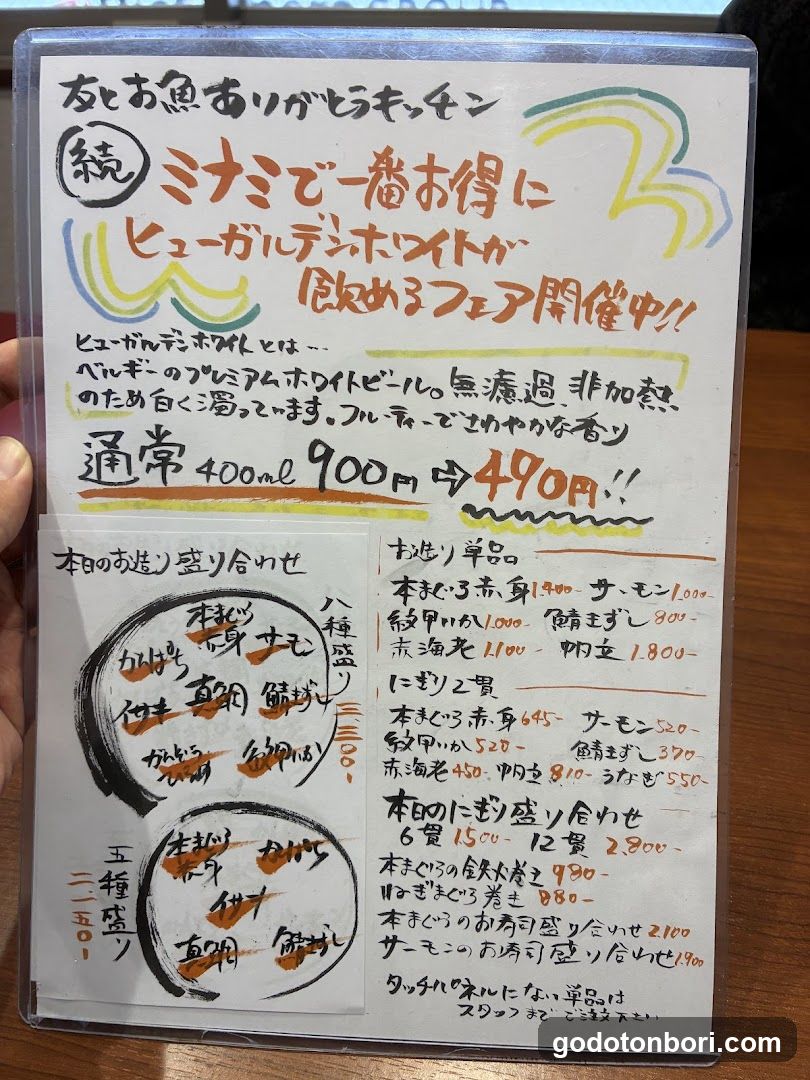 友とお魚ありがとうキッチン
続 ミナミで一番お得に
ヒューガルデンホワイトが
飲めるフェア開催中!!
ヒューガルデンホワイトとは…
ベルギーのプレミアムホワイトビール。無濾過、非加熱
のため白く濁っています。フルーティーでさわやかな香り
通常 400ml 900円 ⇨ 490円!!
本日のお造り盛り合わせ
八種盛り 三.三〇〇-
本まぐろ赤身
サーモン
かんぱち
イサキ
真鯛
鯖きずし
紋甲いか
五種盛り 二.一五〇-
本まぐろ赤身
かんぱち
イサキ
真鯛
鯖きずし
お造り単品
本まぐろ赤身1.400- サーモン1.000-
紋甲いか1.000- 鯖きずし800-
赤海老1.100- 帆立1.800-
にぎり2貫
本まぐろ赤身645- サーモン520-
紋甲いか520- 鯖きずし370-
赤海老450- 帆立810- うなぎ550-
本日のにぎり盛り合わせ
6貫1.500- 12貫2.800-
本まぐろの鉄火巻き980-
ねぎまぐろ巻き880-
本まぐろのお寿司盛り合わせ2.100
サーモンのお寿司盛り合わせ1.900
タッチパネルにない単品は
スタッフまでご注文下さい
godotonbori.com